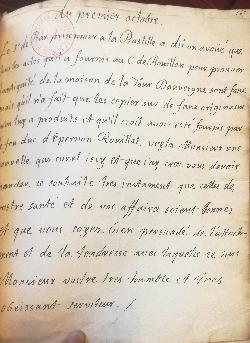 du premier octobre.
Le Sr de Bar prisonnier a la Bastille a dit et avoué que
les actes quil a fournis au C. de Bouillon pour prouver
lantiquité de la maison de la Tour Dauvergne sont faux
mais quil na fait que les copier sur de faux originaux
quon luy a produits et quil croit avoir esté fournis par
le feu duc d'Epernon Roüillat, voyla Monsieur une
nouvelle qui court icy et que iay creu vous devoir
mander, ie souhaite tres instament que celles de
vostre santé et de vos affaires soient bonnes
et que vous soyez bien persuadé de l'attache-
ment et de la tendresse avec laquelle ie suis
Monsieur vostre tres humble et tres
obeissant serviteur. /